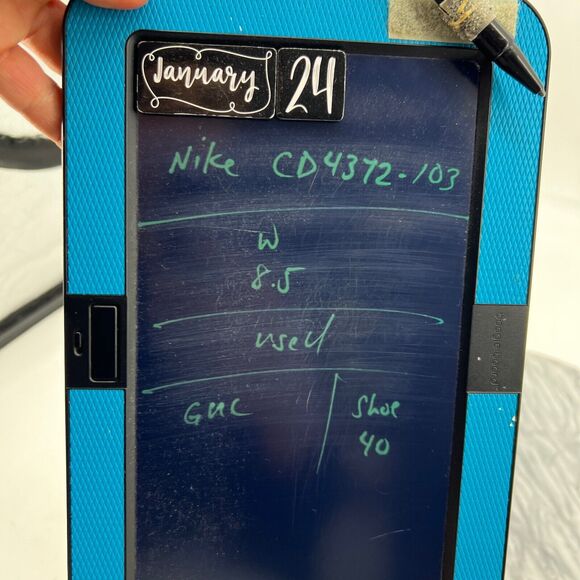 January 24
Nike CD4372-103
W
8.5
used
GUC
Shoe
40
boogie board